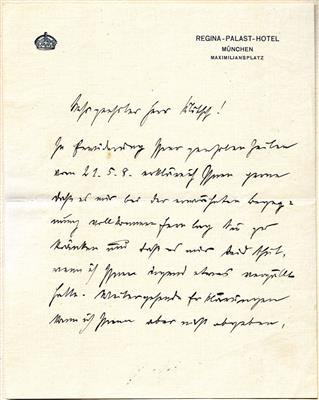 REGINA-PALAST-HOTEL
MÜNCHEN
MAXIMILIANSPLATZ
Sehr geehrter Herr !
In Erwiderung Ihrer geehrten Zeilen
vom 21.5. erkläre ich Ihnen gerne
daß es mir bei der erwähnten Begeg-
nung vollkommen fern lag Sie zu
kränken und daß es mir leid thut,
wenn ich Ihnen irgend etwas
hätte. Weitergehende Erklärungen
kann ich Ihnen aber nicht abgeben,